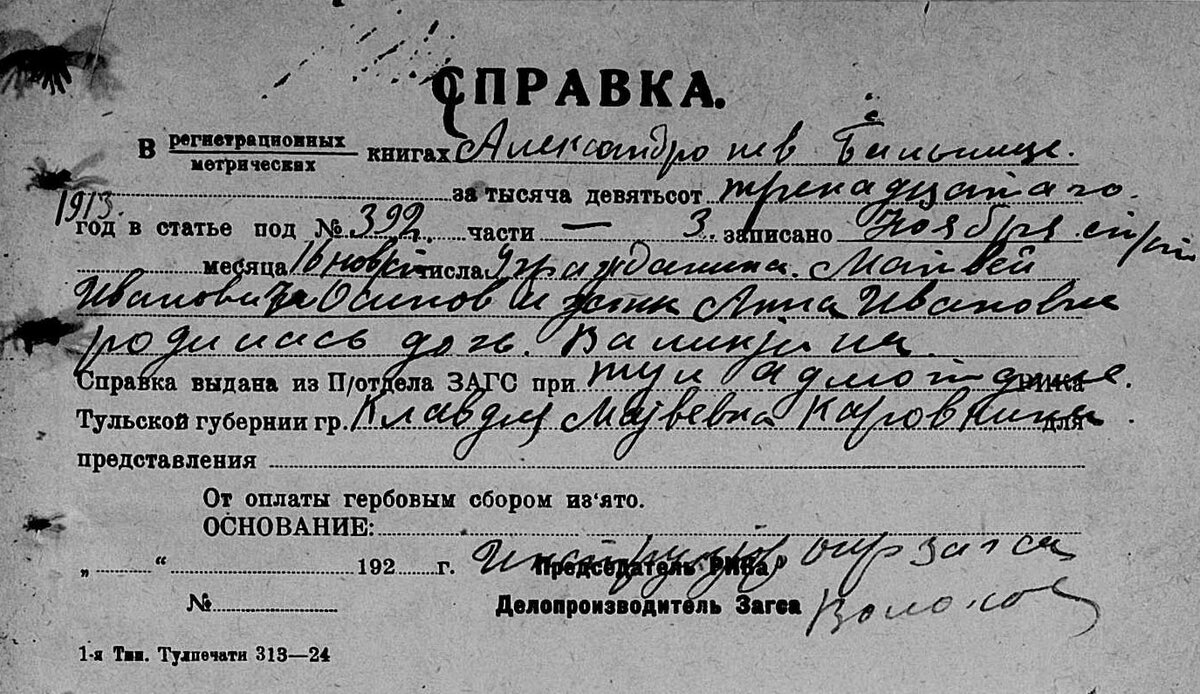 СПРАВКА.
В регистрационных метрических книгах Александро нев Больнице.
за тысяча девятьсот тренадцатаго
1913.
год в статье под № 392. части — 3. записано Ноября
месяца 16 числа У гражданина Матвей
Ивановича Осипов и Анна Ивановна
родилась дочь. Валинтина
Справка выдана из П/отдела ЗАГС при тул РИКА
Тульской губернии гр. Клавдия Матвевна Каровкина для
представления
От оплаты гербовым сбором из‘ято.
ОСНОВАНИЕ:
„ “ 192 г. Председатель РИКа
№ Делопроизводитель Загса
1-я Тип. Тулпечати 313—24